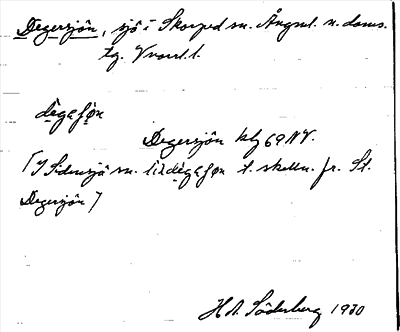 Degersjön, sjö i Skorped sn. Ångml. n. doms.
tg. Vvnrl. l.
dègaʃøn
Degersjön kbl 69 NV.
[I Sidensjö sn. lìzdègaʃøn t. skilln. fr. St.
Degersjön]
H. A. Söderberg 1930